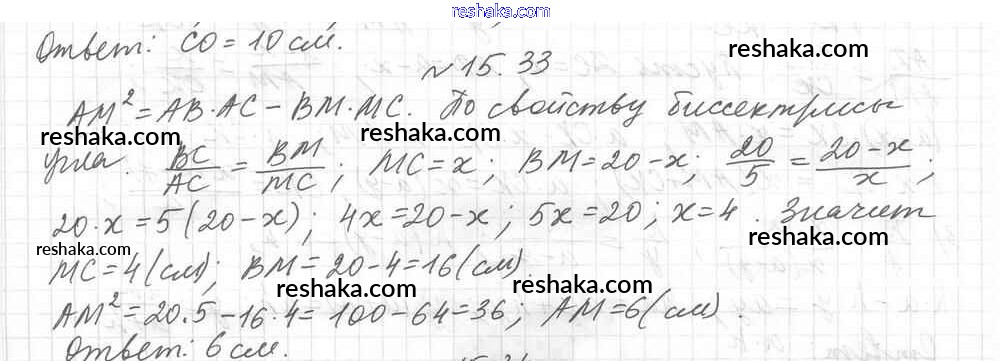 reshaka.com
Ответ: CO = 10 см.
reshaka.com
№ 15.33
AM² = AB·AC − BM·MC. По свойству биссектрисы
reshaka.com reshaka.com
угла. BC/AC = BM/MC; MC = x; BM = 20−x; 20/5 = (20−x)/x;
reshaka.com reshaka.com
20·x = 5(20−x); 4x = 20−x; 5x = 20; x = 4. Значит
reshaka.com reshaka.com
MC = 4(см); BM = 20−4 = 16(см).
reshaka.com reshaka.com
AM² = 20.5 − 16·4 = 100 − 64 = 36; AM = 6(см).
Ответ: 6 см.